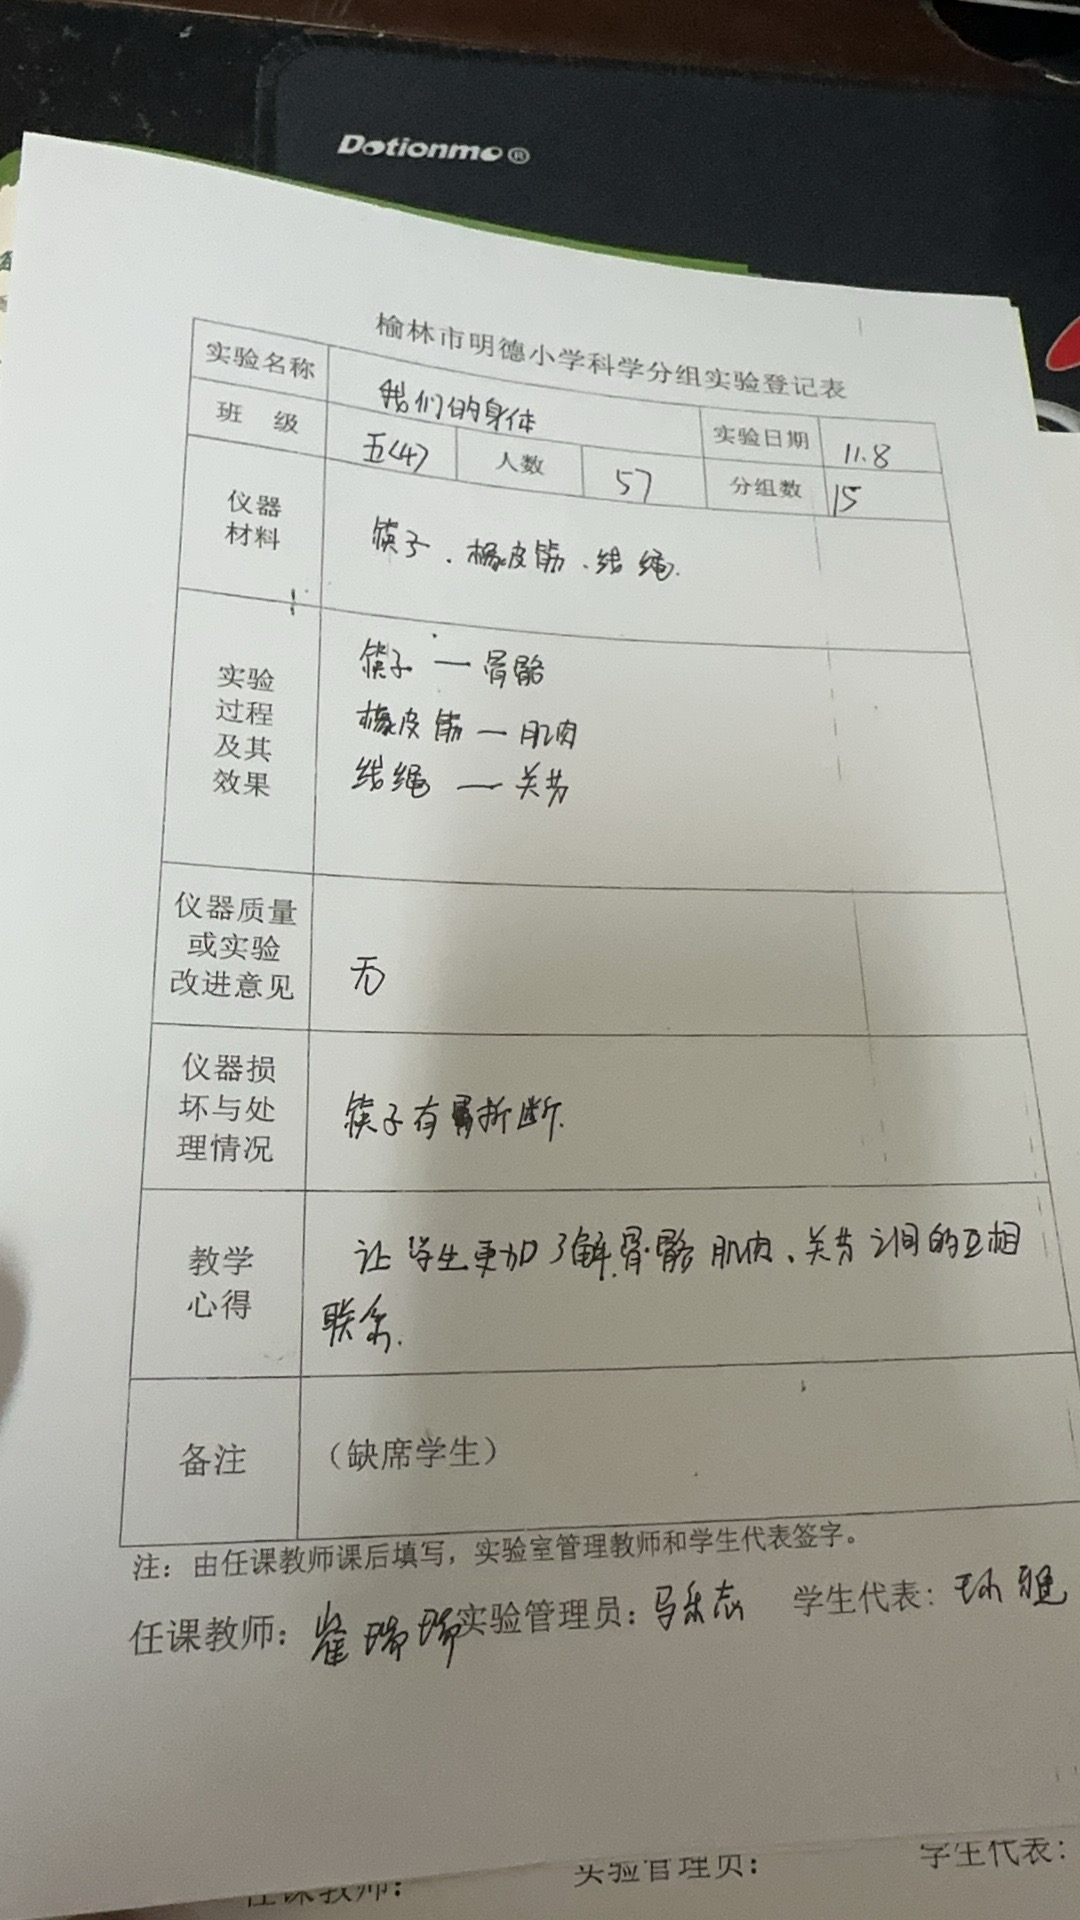 Dotionmo®
榆林市明德小学科学分组实验登记表
实验名称 我们的身体 实验日期 11.8
班 级 五<4> 人数 57 分组数 15
仪器
材料
筷子、橡皮筋、线绳.
实验
过程
及其
效果
筷子 — 骨骼
橡皮筋 — 肌肉
线绳 — 关节
仪器质量
或实验
改进意见
无
仪器损
坏与处
理情况
筷子有 折断.
教学
心得
让学生更加了解骨骼 肌肉、关节之间的互相
联系.
备注
（缺席学生）
注：由任课教师课后填写，实验室管理教师和学生代表签字。
任课教师： 实验管理员： 学生代表：
任课教师： 实验管理员： 学生代表：